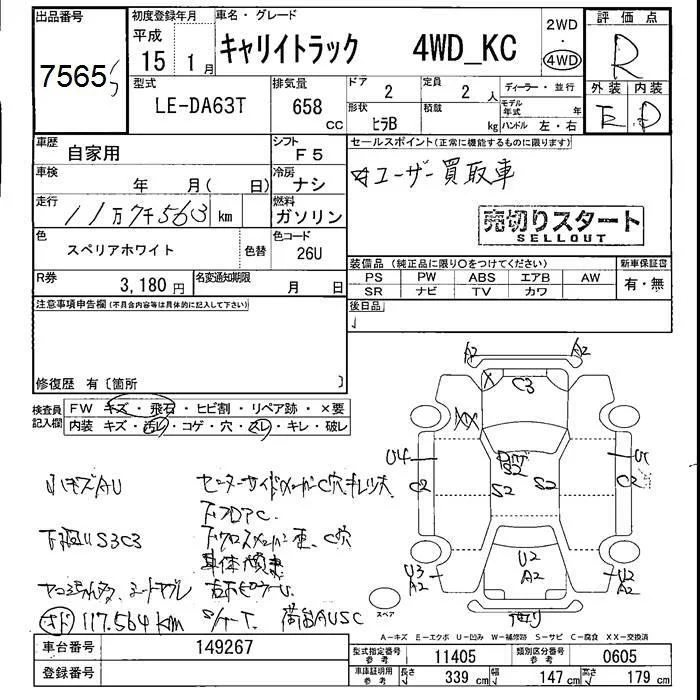 出品番号 初度登録年月 車名・グレード 評価点
7565 平成 15年 1月 キャリイトラック 4WD_KC 2WD 4WD R
型式 排気量 ドア 定員 ディーラー・並行 外装 内装
LE-DA63T 658 CC 2 2人 モデル年式 年 E D
形状 ヒラB 積載 kg ハンドル 左・右
車歴 自家用 シフト F5 セールスポイント(正常に機能するものに限ります)
車検 年 月( 日) 冷房 ナシ ☆ユーザー買取車
走行 11万7千563 km 燃料 ガソリン 売切りスタート
SELLOUT
色 スペリアホワイト 色替 色コード 26U
装備品(純正品に限り○をつけてください) 新車保証書
PS PW ABS エアB AW 有・無
SR ナビ TV カワ
R券 3,180円 名変通知期限 月 日
注意事項申告欄(不具合内容等は具体的に記入して下さい) 後日品
修復歴 有〔箇所 〕
検査員記入欄 FW キズ・飛石・ヒビ割・リペア跡・×要
内装 キズ・汚レ・コゲ・穴・スレ・キレ・破レ
A2 A2
X C3
XX
U4 S2
C2 S2 S2 C2
U2
U3 A2 A2 U2 A2
小キズAU
下廻りS3C3
117.564km
荷台AUSC
スペア
A-キズ E-エクボ U-凹み W-補修跡 S-サビ C-腐食 XX-交換済
車台番号 149267 型式指定番号 参考 11405 類別区分番号 参考 0605
登録番号 車庫証明用 参考 長さ 339 cm 幅 147 cm 高さ 179 cm